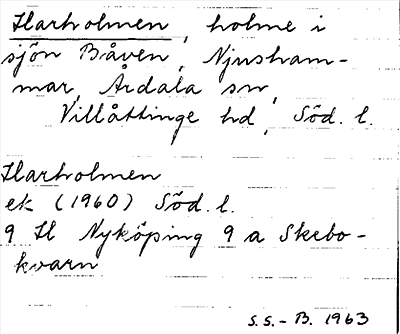 Harholmen, holme i
sjön Båven, Njusham-
mar, Årdala sn,
Villåttinge hd, Söd. l.
Harholmen
ek (1960) Söd. l.
9 H Nyköping 9 a Skebo-
kvarn
S.S. - B. 1963